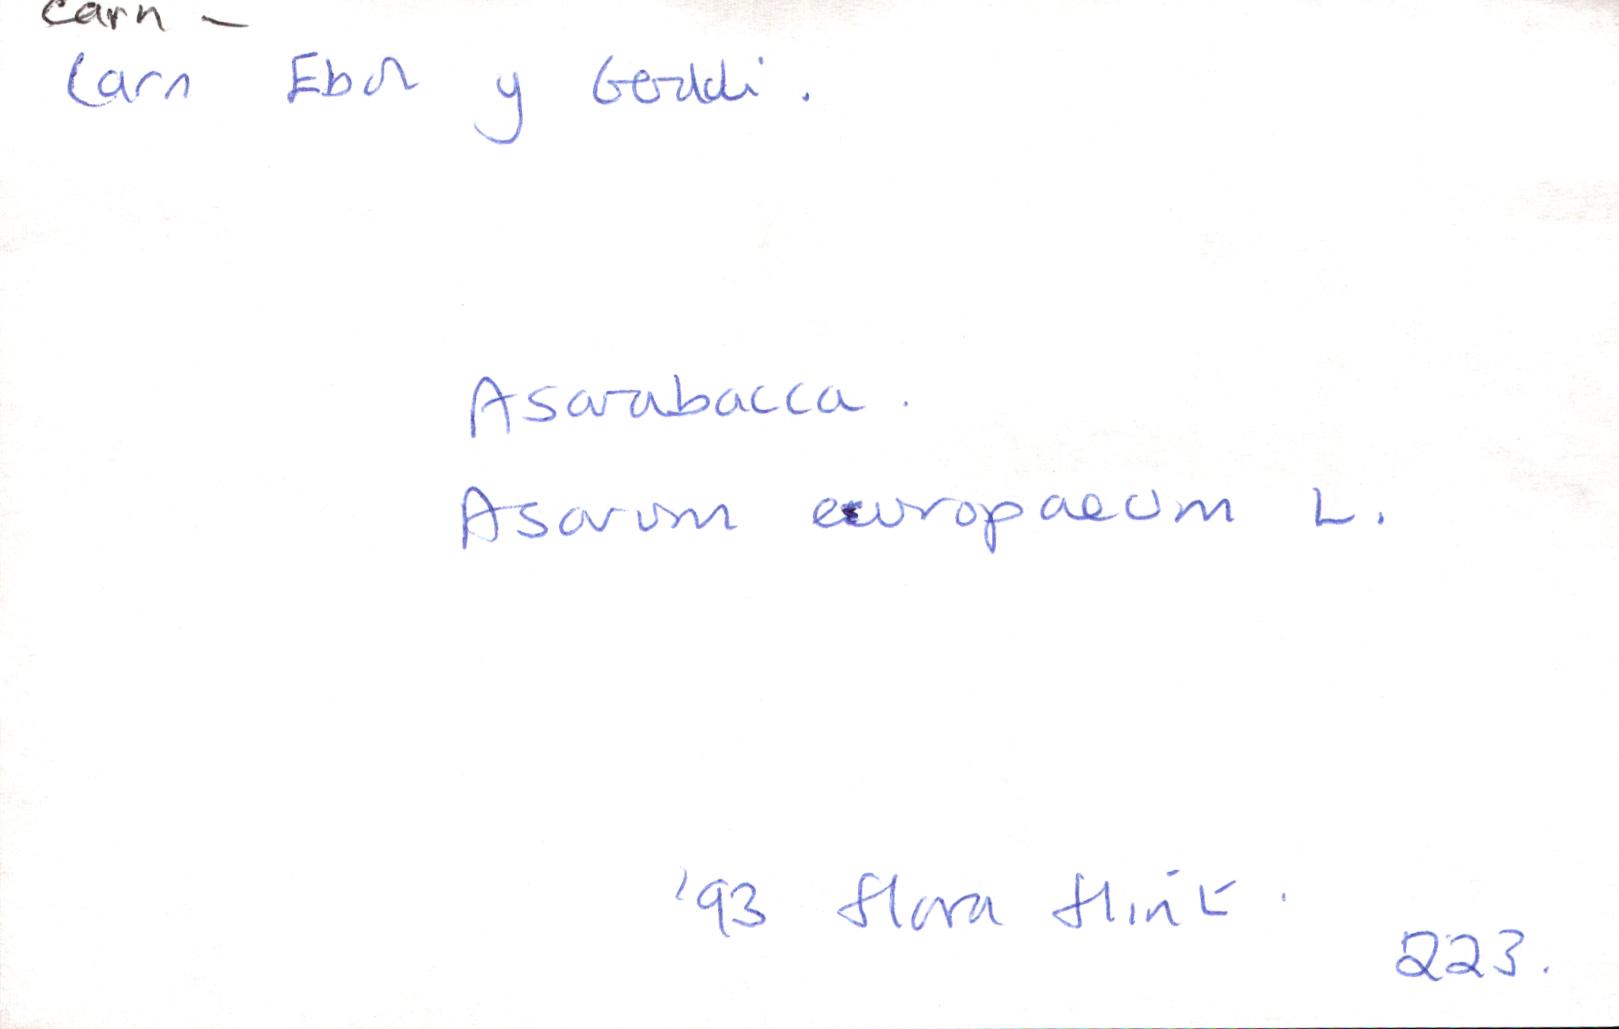 carn -
Carn Ebol y Gerddi.
Asarabacca.
Asarum europaeum L.
'93 Flora Flint.
223.